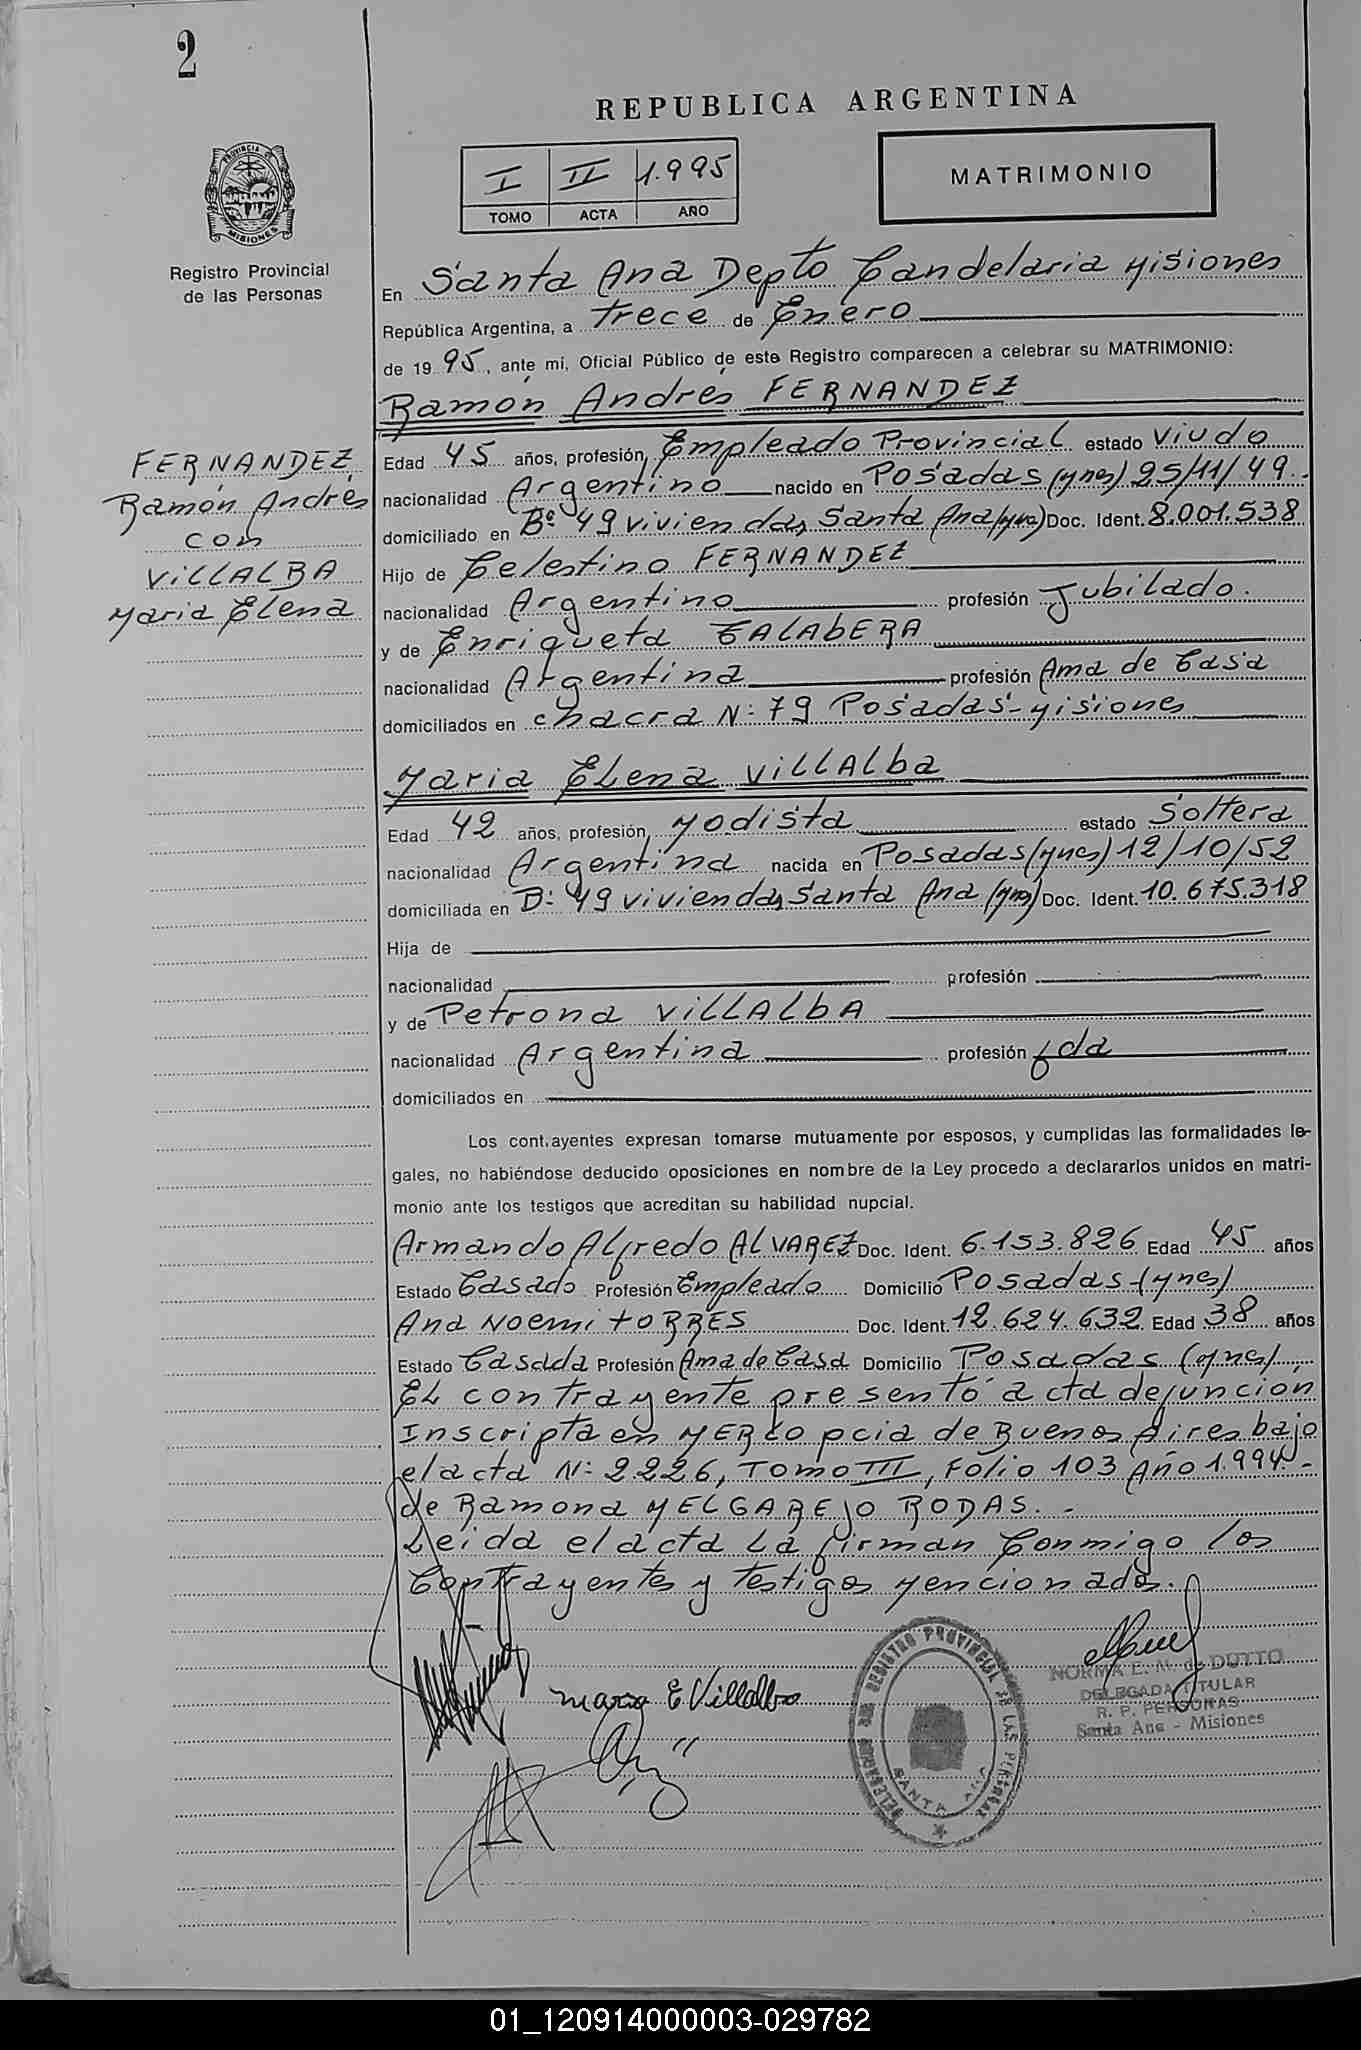 2
REPUBLICA ARGENTINA
I II 1.995
TOMO ACTA AÑO
MATRIMONIO
PROVINCIA DE
MISIONES
Registro Provincial
de las Personas
En Santa Ana Depto Candelaria Misiones
República Argentina, a trece de Enero
de 1995, ante mí, Oficial Público de este Registro comparecen a celebrar su MATRIMONIO:
Ramón Andrés FERNANDEZ
FERNANDEZ
Ramón Andrés
con
VILLALBA
Maria Elena
Edad 45 años, profesión Empleado Provincial estado Viudo
nacionalidad Argentino nacido en Posadas (Mnes) 25/11/49.
domiciliado en Bº 49 viviendas, Santa Ana (Mnes) Doc. Ident. 8.001.538
Hijo de Celestino FERNANDEZ
nacionalidad Argentino profesión Jubilado.
y de Enriqueta TALAbERA
nacionalidad Argentina profesión Ama de Casa
domiciliados en chacra N: 79 Posadas-Misiones
Maria Elena VillAlba
Edad 42 años, profesión Modista estado Soltera
nacionalidad Argentina nacida en Posadas (Mnes) 12/10/52
domiciliada en B: 49 viviendas, Santa Ana (Mnes) Doc. Ident. 10.675.318
Hija de
nacionalidad profesión
y de Petrona VillAlbA
nacionalidad Argentina profesión fda
domiciliados en
Los cont.ayentes expresan tomarse mutuamente por esposos, y cumplidas las formalidades le-
gales, no habiéndose deducido oposiciones en nombre de la Ley procedo a declararlos unidos en matri-
monio ante los testigos que acreditan su habilidad nupcial.
Armando Alfredo ALVAREZ Doc. Ident. 6.153.826 Edad 45 años
Estado Casado Profesión Empleado Domicilio Posadas-(Mnes)
Ana Noemi toRRES Doc. Ident. 12.624.632 Edad 38 años
Estado Casada Profesión Ama de Casa Domicilio Posadas (Mnes),
EL contrayente presentó acta defunción
Inscripta en MERLO pcia de Buenos Aires bajo
el acta N: 2226, Tomo III, Folio 103 Año 1.994.-
de Ramona MELGAREJO RODAS.-
Leida el acta La firman Conmigo los
Contrayentes y Testigos Mencionados.
Maria E Villalba
DELEGACION DEL REGISTRO PROVINCIAL DE LAS PERSONAS
SANTA ANA
NORMA E. M. de DUTTO
DELEGADA TITULAR
R. P. PERSONAS
Santa Ana - Misiones
01_120914000003-029782